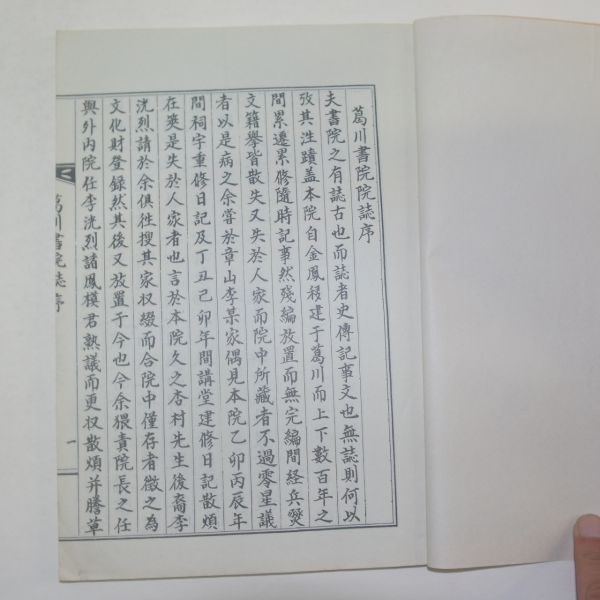 葛川書院院誌序
夫書院之有誌古也而誌者史傳記事文也無誌則何以
攷其迬蹟盖本院自金鳳移建于葛川而上下數百年之
間累遷累修隨時記事然殘編放置而無完編間經兵燹
文籍擧皆散失又失於人家而院中所藏者不過零星議
者以是病之余嘗於章山李某家偶見本院乙卯丙辰年
間祠宇重修日記及丁丑己卯年間講堂建修日記散煩
在篋是失於人家者也言於本院久之杏村先生後裔李
洸烈請於余俱徃搜其家收綴而合院中僅存者徵之為
文化財登錄然其後又放置于今也今余猥責院長之任
與外內院任李洸烈諸鳳模君熟議而更收散煩并謄草
葛川書院誌序
一